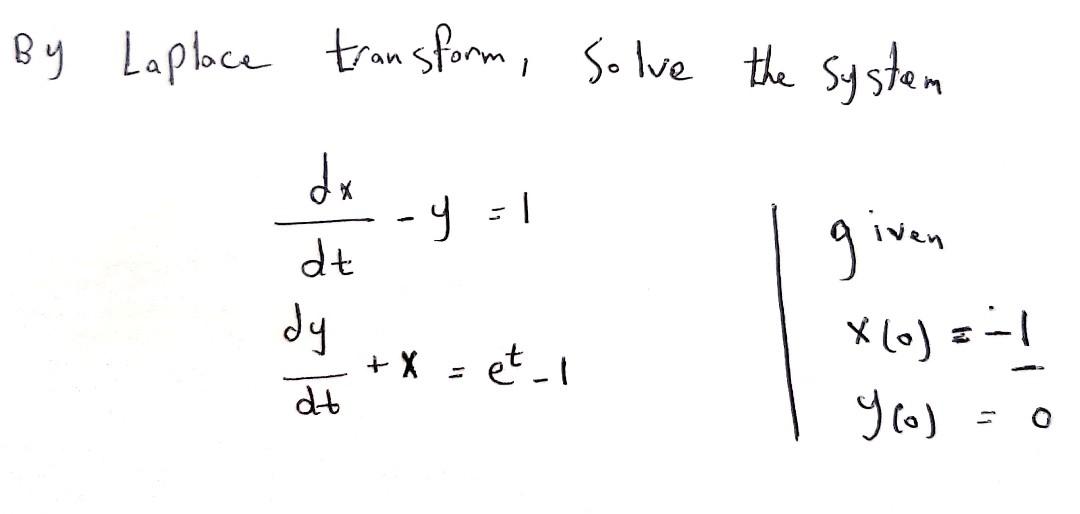 By Laplace transform, Solve the System
dx/dt - y = 1
dy/dt + x = e^t - 1
given
x(0) = -1
y(0) = 0